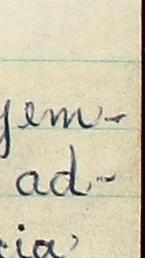 yem-
ad-
cia